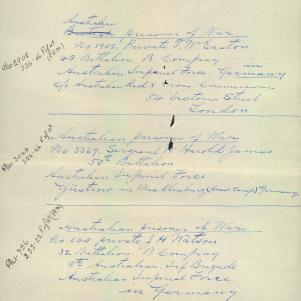 Australian
prisoner of War
No 1902, Private T. W. Easton
48 Battalion, B. Company in
Australian Imperial Force. Germany
c/o Australian Red Cross Commission
54 Victoria Street
London
Australian prisoner of War
No 3369, Sergeant Harold James
50th Battalion
Australian Imperial Force
Güstrow in Mecklenburg Germany
Australian prisoner of War
No 640 private J H Watson
32 Battalion, B Company
8th Australian, Inf Brigade
Australian Imperial Force
in Germany